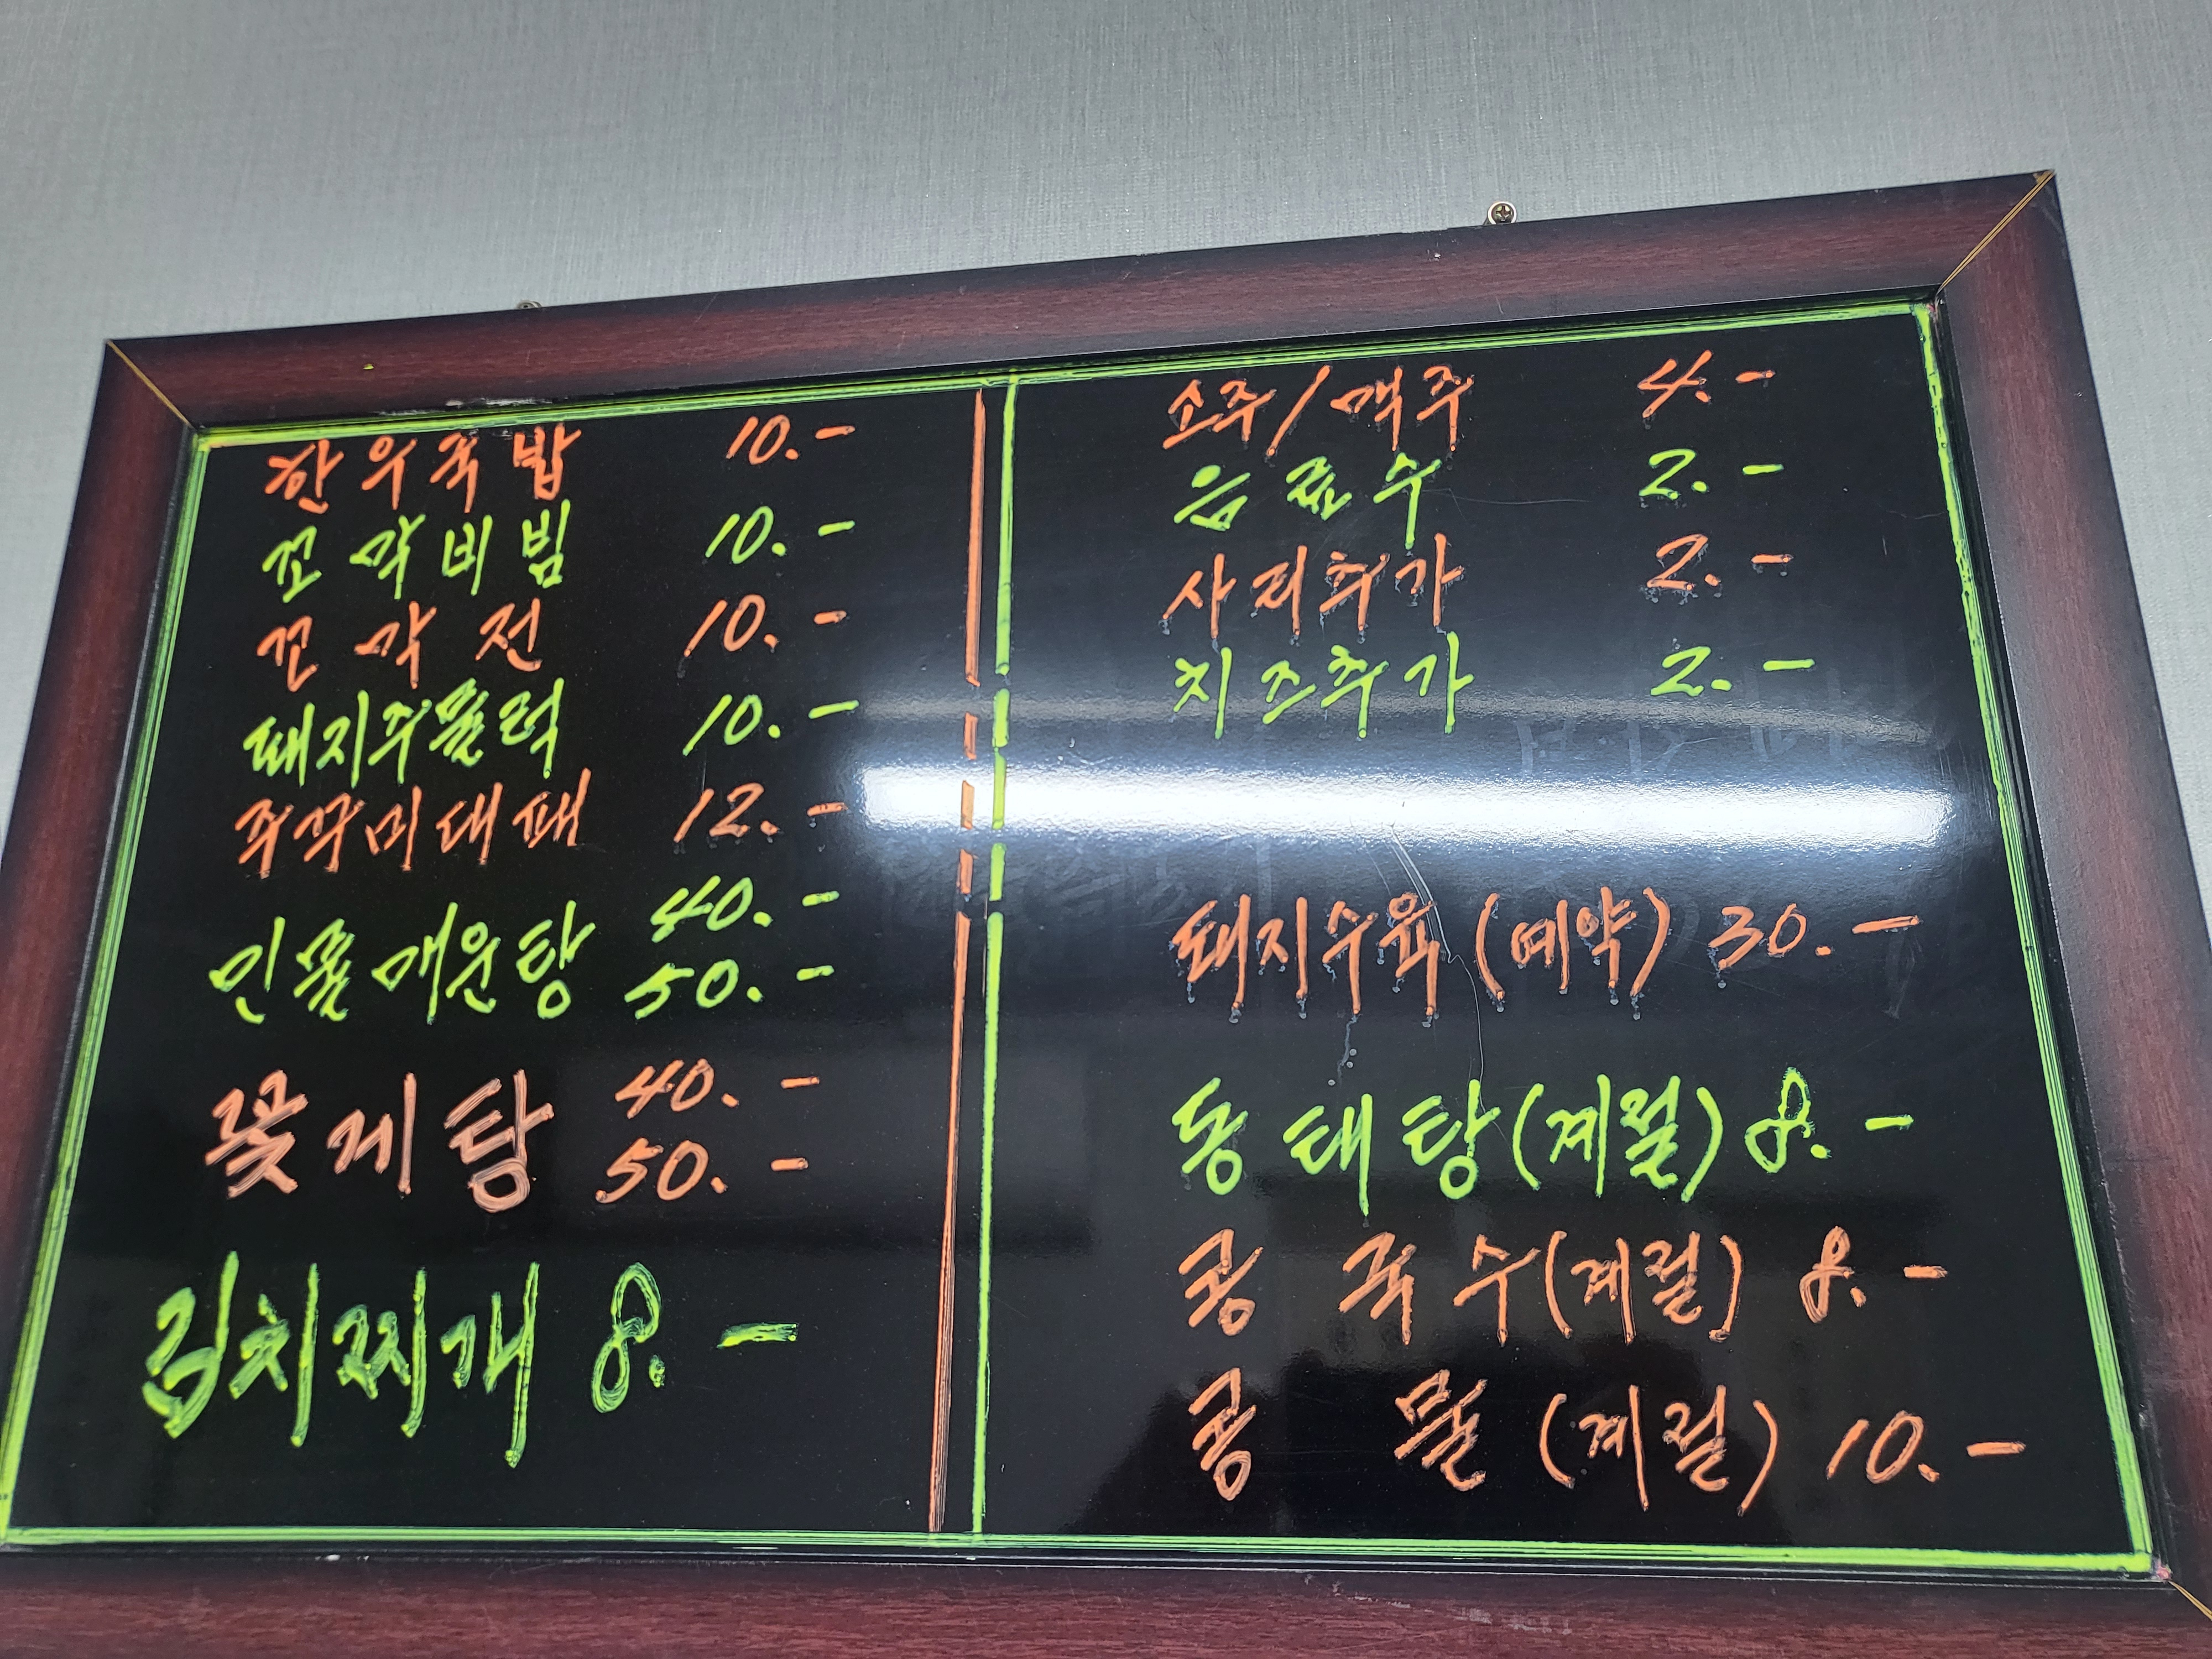 한우국밥 10.-
꼬막비빔 10.-
꼬막전 10.-
돼지주물럭 10.-
쭈꾸미대패 12.-
민물매운탕 40.-
50.-
꽃게탕 40.-
50.-
김치찌개 8.-
소주/맥주 4.-
음료수 2.-
사리추가 2.-
치즈추가 2.-
돼지수육(예약) 30.-
동태탕(계절) 8.-
콩국수(계절) 8.-
콩물(계절) 10.-